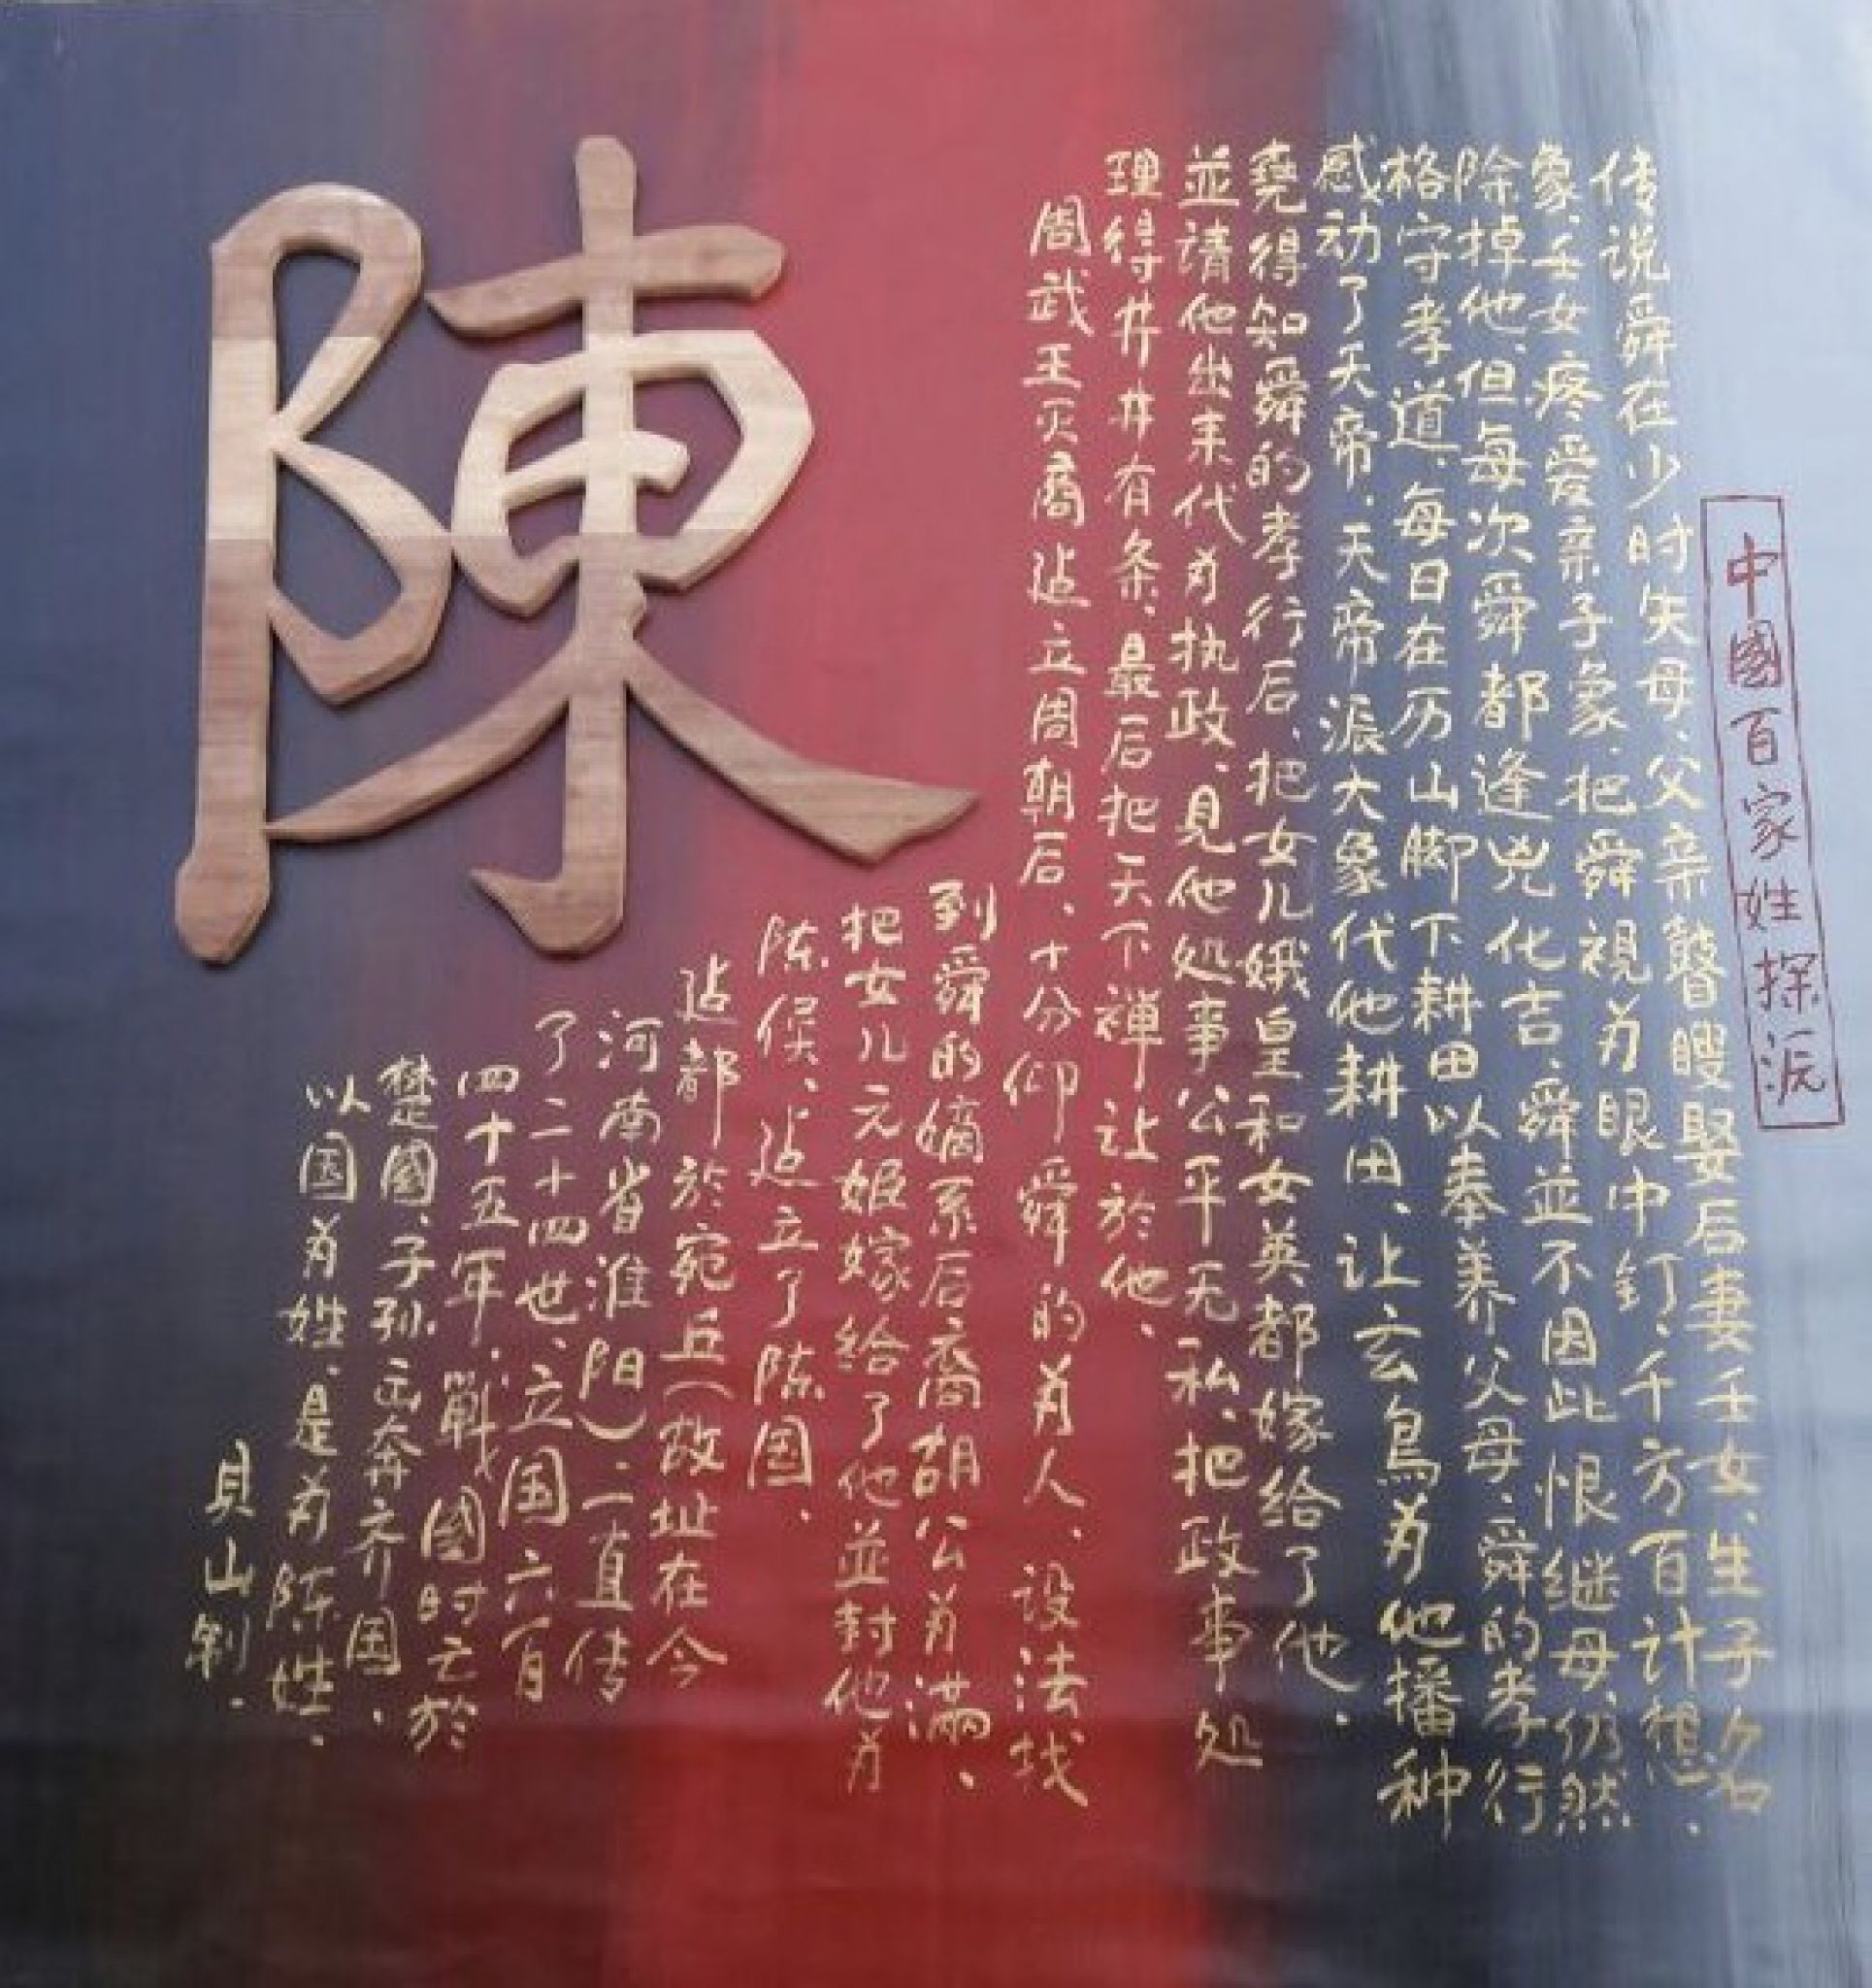 中國百家姓探源
传说舜在少时失母、父亲瞽瞍娶后妻壬女、生子名
象、壬女疼爱亲子象、把舜視为眼中钉、千方百计想、
除掉他、但每次舜都逢兇化吉、舜並不因此恨继母、仍然
格守孝道、每日在历山脚下耕田以奉养父母、舜的孝行
感动了天帝、天帝派大象代他耕田、让玄鳥为他播种
堯得知舜的孝行后、把女儿娥皇和女英都嫁给了他、
並請他出来代为执政、見他処事公平无私、把政事処
理得井井有条、最后把天下禅让於他、
周武王灭商建立周朝后、十分仰舜的为人、设法找
到舜的嫡系后裔胡公为满、
把女儿元姬嫁给了他並封他为
陈侯、建立了陈国、
建都於宛丘(故址在今
河南省淮阳)一直传
了二十四世、立国六百
四十五年、戰國时亡於
楚國、子孙出奔齐国、
以国为姓、是为陈姓、
貝山制.
陳